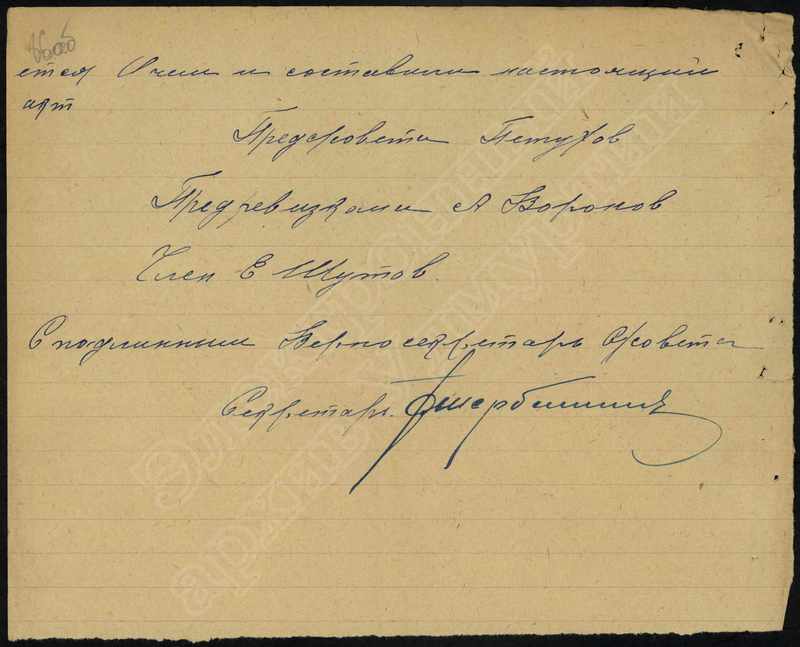 ется О чем и составили настоящий
акт
Предсовета Петухов
Предревизкоми А Воронов
Член Е Шутов.
С подлинным Верно секретарь С/совета
Секретарь
Электронный
архив Удмуртии